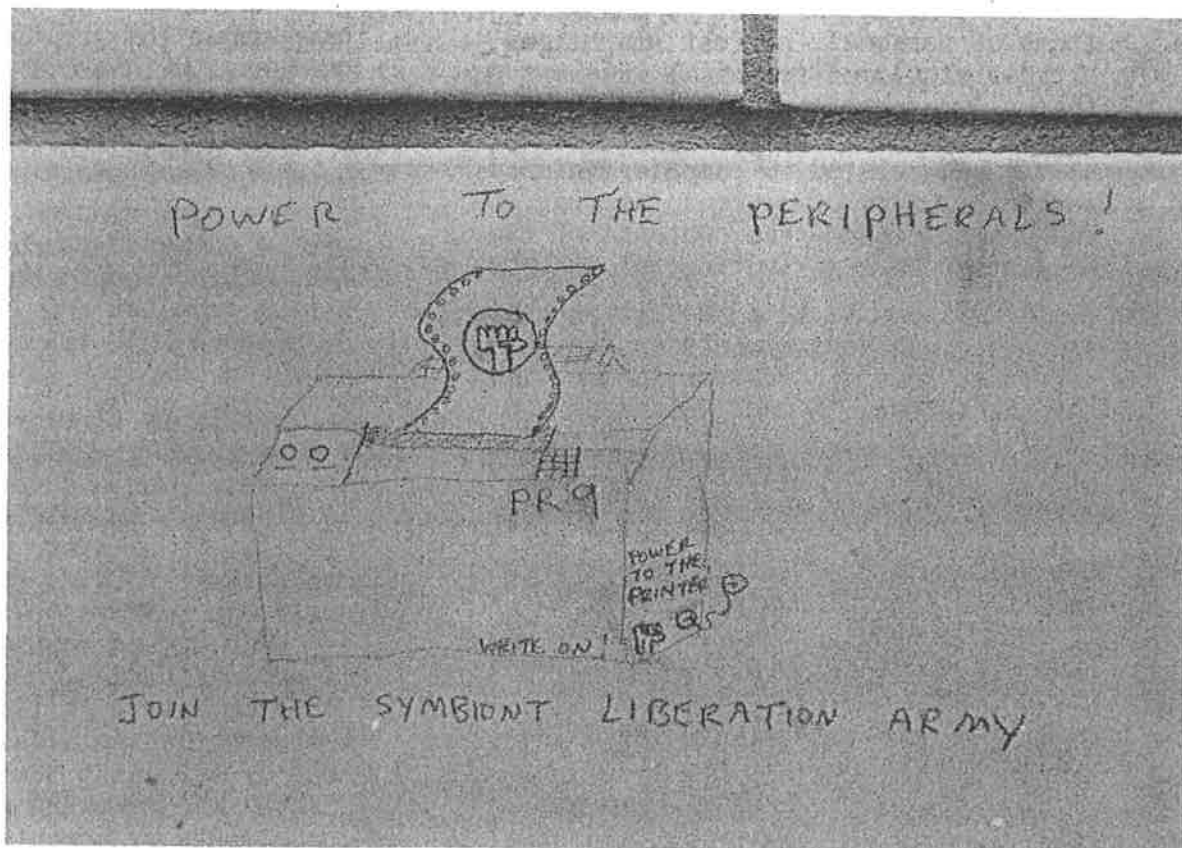 POWER TO THE PERIPHERALS!
PR9
POWER
TO THE
PRINTER
WRITE ON!
JOIN THE SYMBIONT LIBERATION ARMY